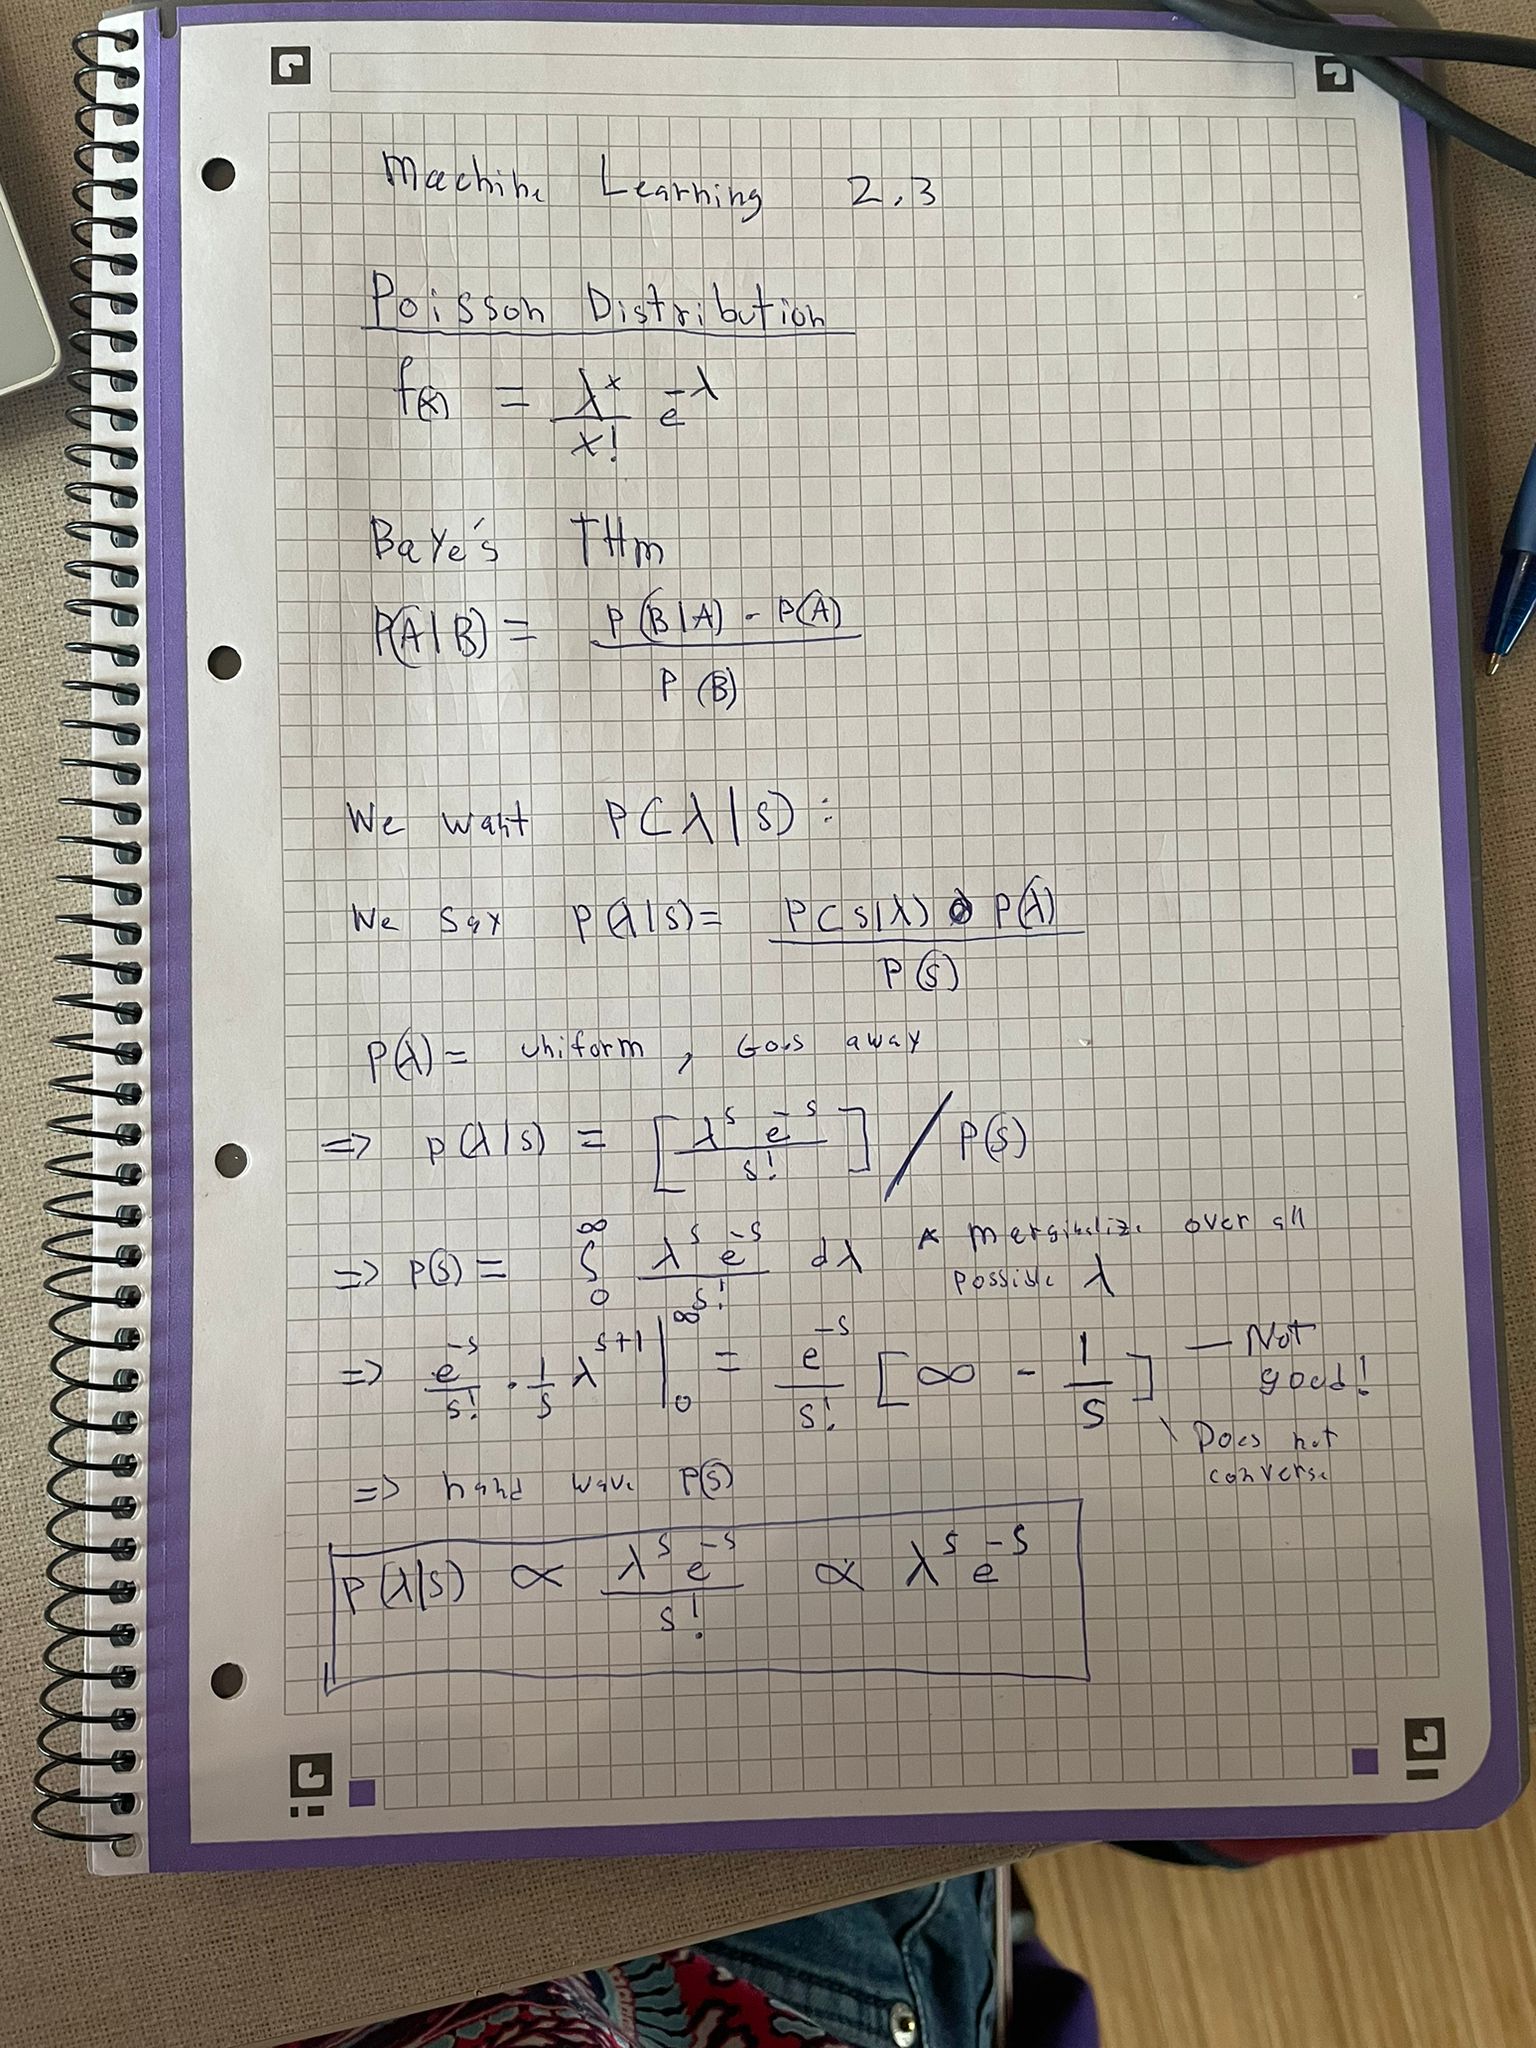 Machine Learning 2.3
Poisson Distribution
f(x) = λ^x / x! e^-λ
Baye's THm
P(A|B) = P(B|A) - P(A) / P(B)
We want P(λ|s) :
We say P(λ|s) = P(s|λ) • P(λ) / P(s)
P(λ) = uniform, Goes away
=> P(λ|s) = [λ^s e^-s / s!] / P(s)
=> P(s) = ∫_0^∞ λ^s e^-s / s! dλ * marginalize over all possible λ
=> e^-s / s! • 1/s λ^s+1 |_0^∞ = e^-s / s! [∞ - 1/s] — Not good!
\ Does not converge
=> hand wave P(s)
P(λ|s) ∝ λ^s e^-s / s! ∝ λ^s e^-s